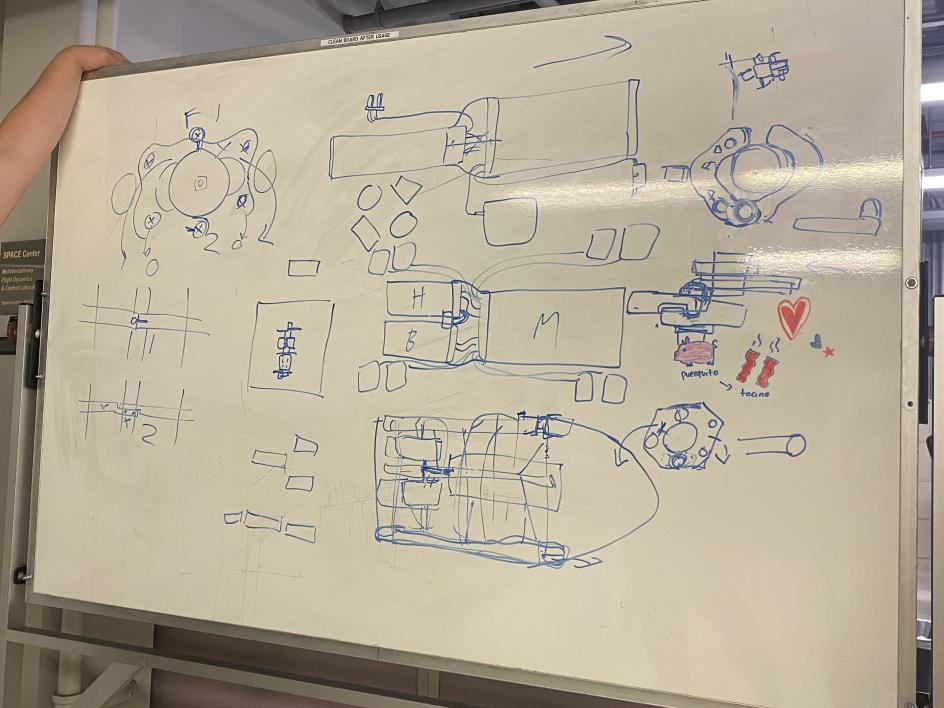 CLEAN BOARD AFTER USAGE
F 1
2
SPACE Center
Multidisciplinary
Flight Dynamics
& Control Laboratory
H
B
M
puerquito
→ tocino
1
2